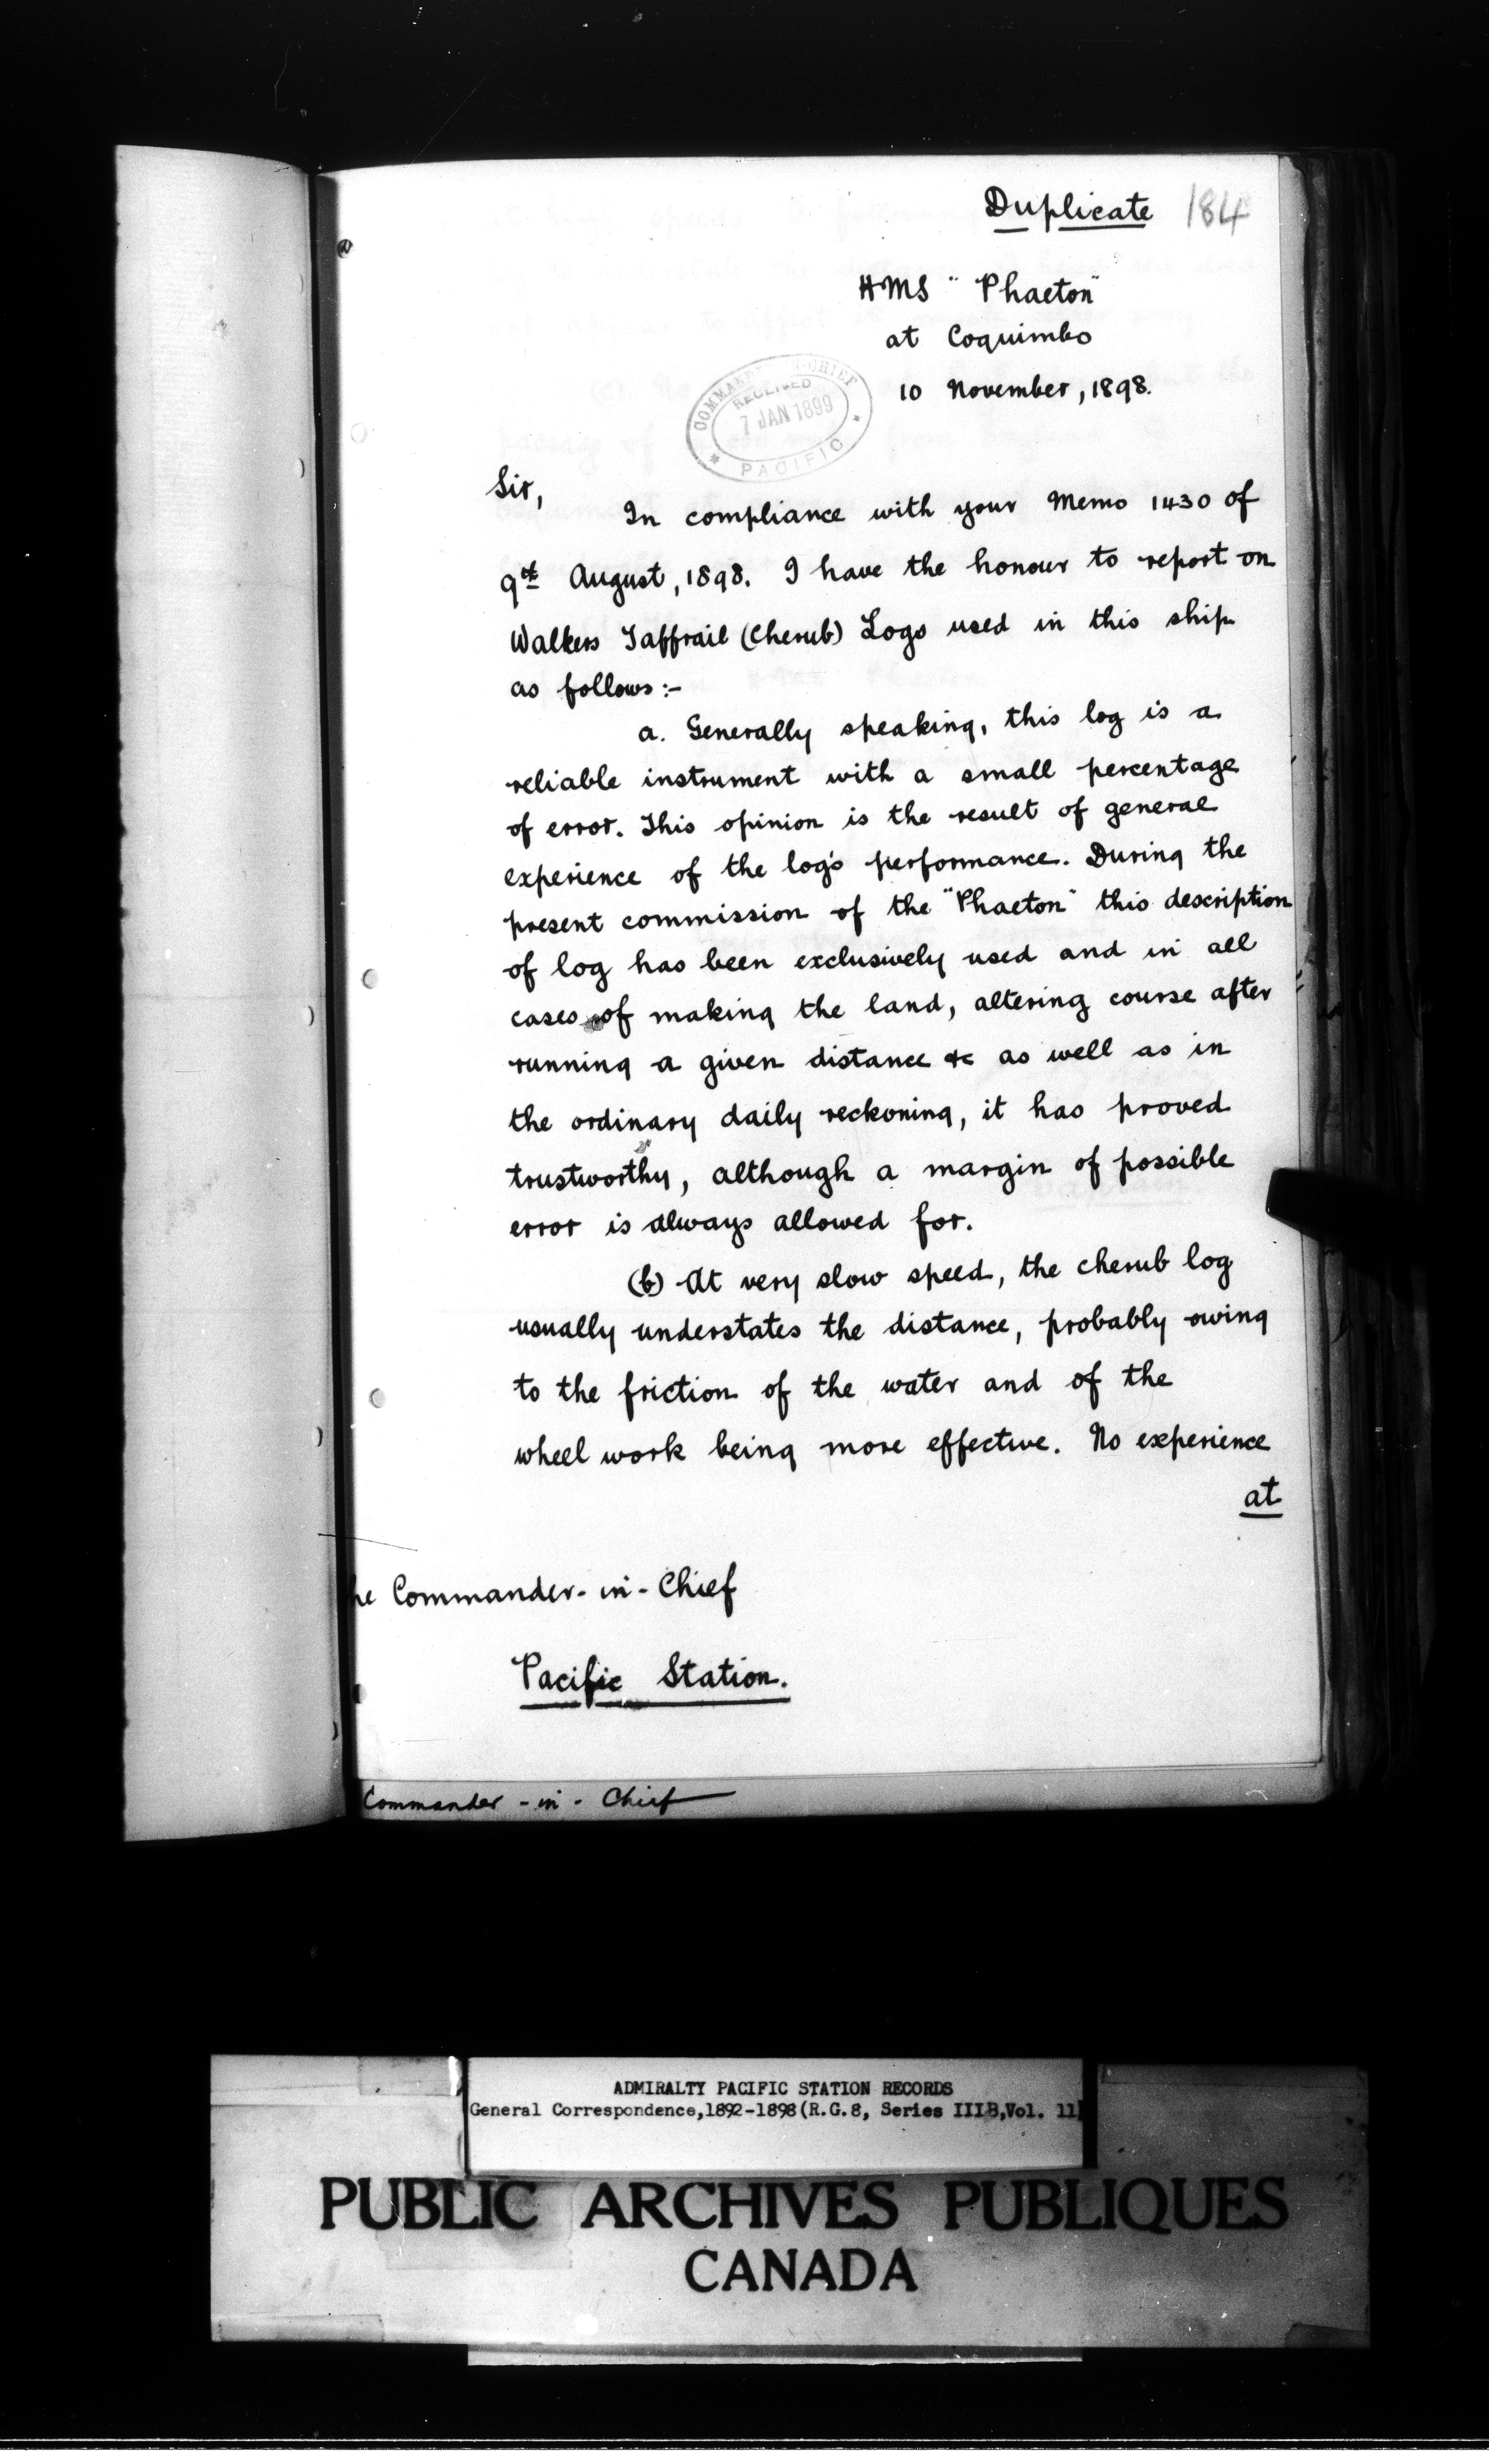 Duplicate 184
HMS "Phaeton"
at Coquimbo
10 November, 1898.
COMMANDER-IN-CHIEF
RECEIVED
7 JAN 1899
* PACIFIC *
Sir,
In compliance with your Memo 1430 of
9th August, 1898. I have the honour to report on
Walkers Taffrail (Cherub) Logs used in this ship
as follows:-
a. Generally speaking, this log is a
reliable instrument with a small percentage
of error. This opinion is the result of general
experience of the log's performance. During the
present commission of the "Phaeton" this description
of log has been exclusively used and in all
cases of making the land, altering course after
running a given distance &c as well as in
the ordinary daily reckoning, it has proved
trustworthy, although a margin of possible
error is always allowed for.
(b) At very slow speed, the cherub log
usually understates the distance, probably owing
to the friction of the water and of the
wheel work being more effective. No experience
at
he Commander-in-Chief
Pacific Station.
Commander-in-Chief
ADMIRALTY PACIFIC STATION RECORDS
General Correspondence,1892-1898(R.G.8, Series IIIB,Vol. 11)
PUBLIC ARCHIVES PUBLIQUES
CANADA